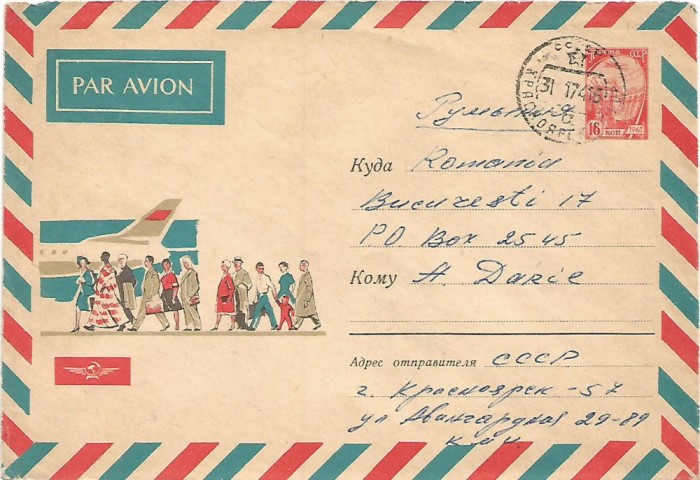 PAR AVION
ПОЧТА СССР
16 КОП 1961
СССР
31 174
Румыния
Куда Romania
Bucuresti 17
PO Box 2545
Кому A. Darie
Адрес отправителя СССР
г. Красноярск - 57
ул Авангардная 29-89